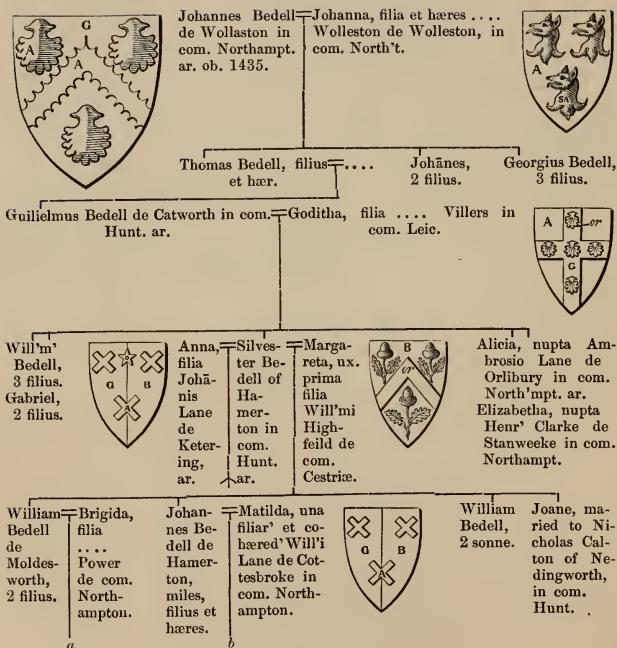 Johannes Bedell
de Wollaston in
com. Northampt.
ar. ob. 1435.
Johanna, filia et hæres ....
Wolleston de Wolleston, in
com. North't.
A
G
A
A
SA
Thomas Bedell, filius
et hær.
....
Johānes,
2 filius.
Georgius Bedell,
3 filius.
Guilielmus Bedell de Catworth in com.
Hunt. ar.
Goditha, filia .... Villers in
com. Leic.
A
or
G
Will'm'
Bedell,
3 filius.
Gabriel,
2 filius.
G
B
A
Anna,
filia
Johā-
nis
Lane
de
Keter-
ing,
ar.
Silves-
ter Be-
dell of
Ha-
mer-
ton in
com.
Hunt.
ar.
Marga-
reta, ux.
prima
filia
Will'mi
High-
feild de
com.
Cestriæ.
B
or
Alicia, nupta Am-
brosio Lane de
Orlibury in com.
North'mpt. ar.
Elizabetha, nupta
Henr' Clarke de
Stanweeke in com.
Northampt.
William
Bedell
de
Moldes-
worth,
2 filius.
Brigida,
filia
....
Power
de com.
North-
ampton.
Johan-
nes Be-
dell de
Hamer-
ton,
miles,
filius et
hæres.
Matilda, una
filiar' et co-
hæred' Will'i
Lane de Cot-
tesbroke in
com. North-
ampton.
G
B
A
William
Bedell,
2 sonne.
Joane, ma-
ried to Ni-
cholas Cal-
ton of Ne-
dingworth,
in com.
Hunt.
a
b